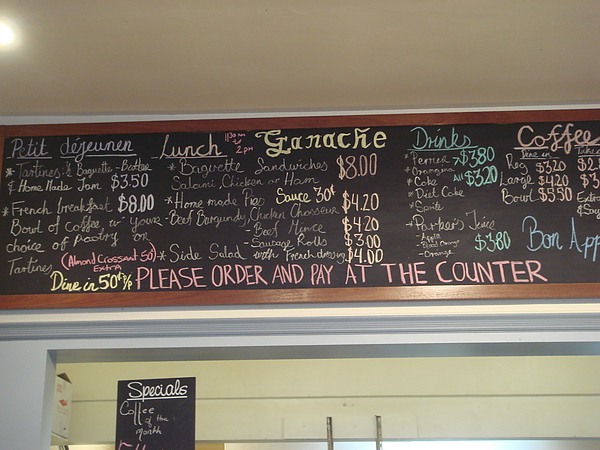 Petit déjeuner
* Tartines ½ Baguette - Butter
& Home Made Jam $3.50
* French breakfast $8.00
Bowl of Coffee, w/ your
choice of pastry or
Tartines (Almond Croissant 50¢ Extra)
Dine in 50¢
Lunch 11:30 am to 2pm
Ganache
* Baguette Sandwiches $8.00
Salami Chicken or Ham
* Home made Pies Sauce 30¢
- Beef Burgundy, Chicken Chosseur $4.20
- Beef Mince $4.20
- Sausage Rolls $3.00
* Side Salad with French dressing $4.00
PLEASE ORDER AND PAY AT THE COUNTER
Drinks
* Perrier $3.80
* Orangina
* Coke All $3.20
* Diet Coke
* Sprite
- Parker's Juices
- Apple
- Blood Orange $3.80
- Orange
Coffee
Dine in Take
Reg $3.20 $2
Large $4.20 $3
Bowl $5.50
Extra
Bon App
Specials
Coffee
of the
Month